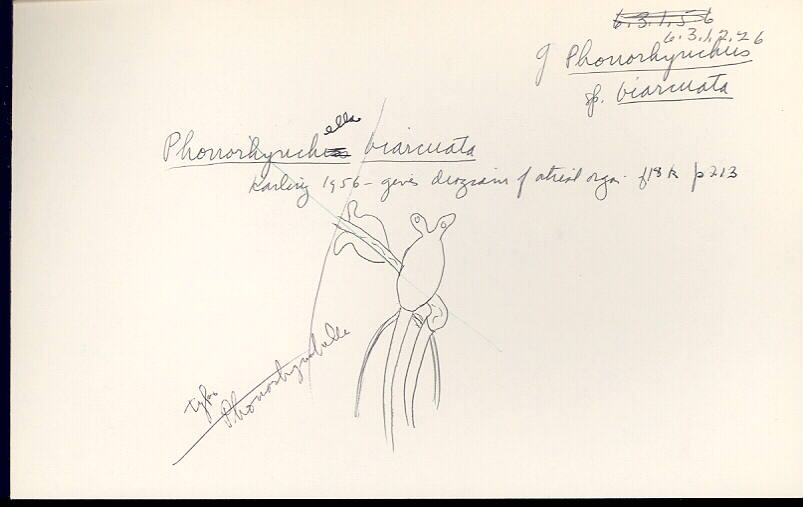 6.3.1.5 6
6.3.1.2.26
g Phonorhynchus
sp. biarcuata
Phonorhynchella biarcuata
Karling 1956 - gives diagram of atrial orga. f18k p213
type
Phonorhynchella